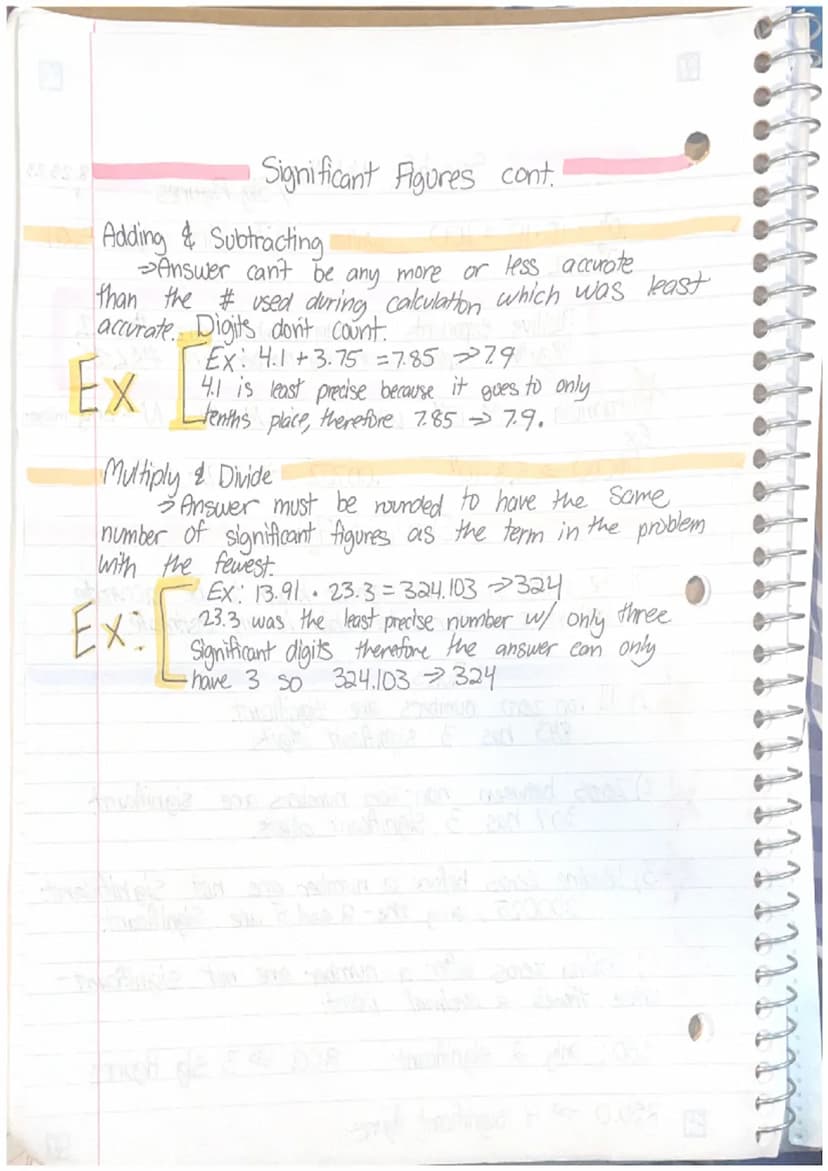 Significant Figures cont.
Adding & Subtracting
⇒Answer can't be any more or less accurate
than the # used during calculation which was least
accurate. Digits don't count.
Ex
Ex: 4.1 + 3.75 = 7.85 ⇒ 7.9
4.1 is least precise because it goes to only
tenths place, therefore 7.85 ⇒ 7.9.
Multiply & Divide
⇒ Answer must be rounded to have the same
number of significant figures as the term in the problem
with the fewest.
Ex:
Ex: 13.91 · 23.3 = 324.103 ⇒ 324
23.3 was the least precise number w/ only three
significant digits therefore the answer can only
have 3 so 324.103 ⇒ 324